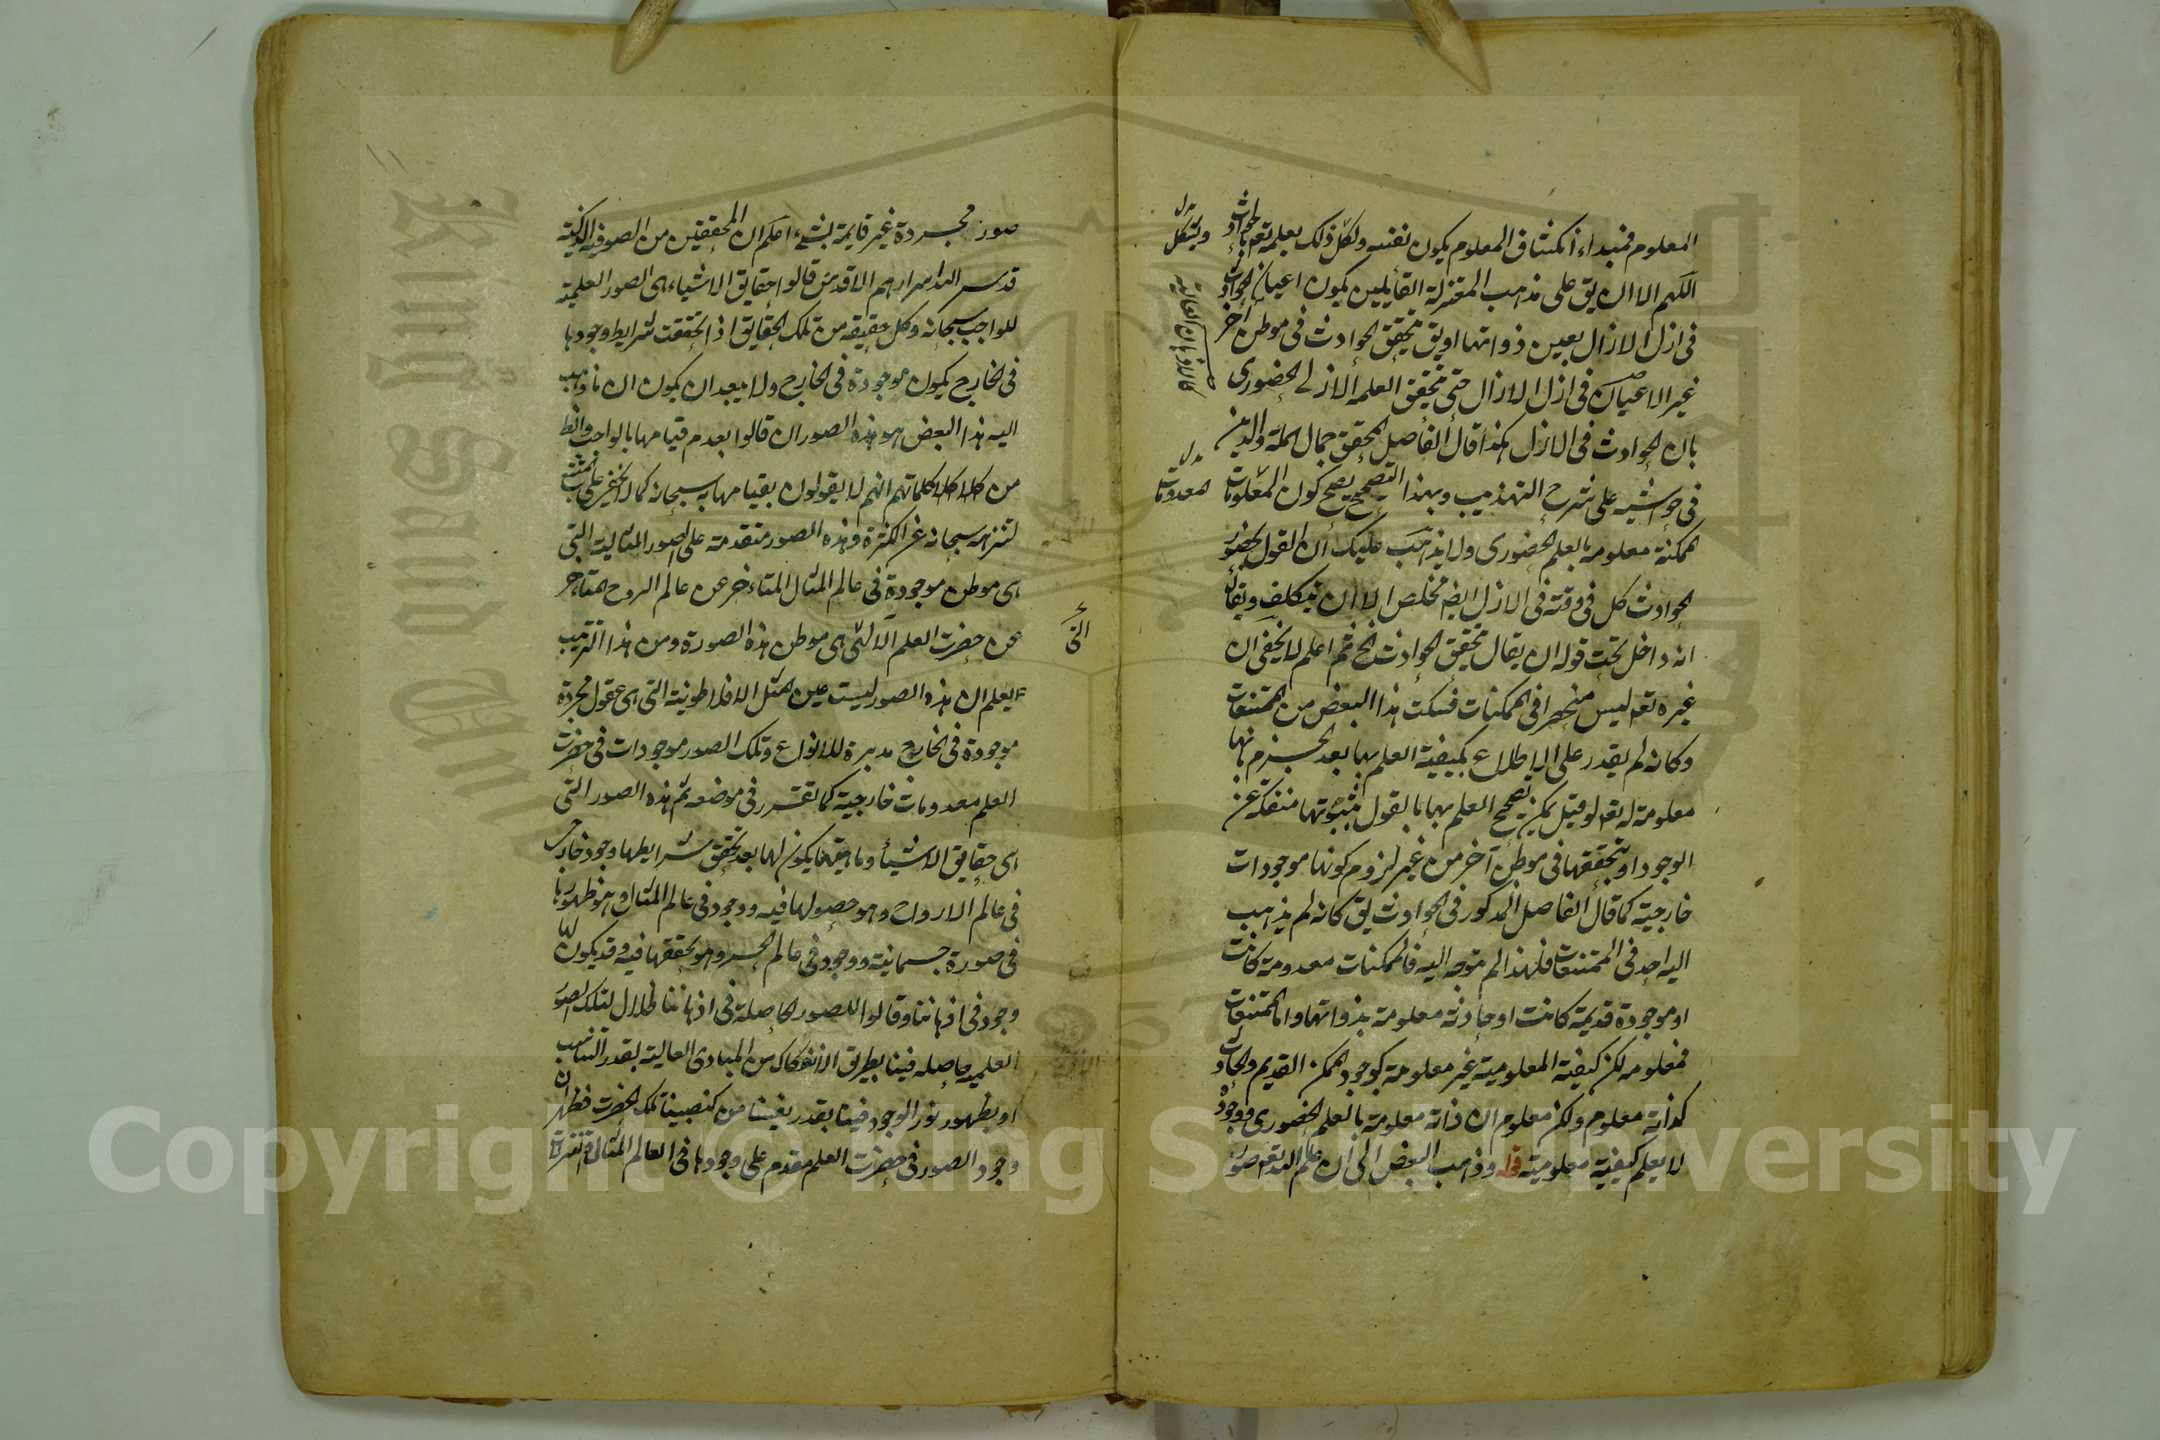 المعلوم فمبداء انكشاف المعلوم يكون نفسه ولكل ذلك بعلمه تعم بالحوادث
اللهم الا ان يق على مذهب المعتزلة القائلين بكون اعيان الحوادث
فى ازل الازال بعين ذواتها او يق بتحقق الحوادث فى موطن آخر
غير الاعيان فى ازل الازال حتى يتحقق العلم الازلى الحضورى
بان الحوادث فى الازل هكذا قال الفاضل المحقق جمال الملة والدين
فى حواشيه على شرح التهذيب وبهذا التصحيح يصح كون المعلومات
ممكنة معلومة بالعلم الحضورى ولا يذهب عليك ان القول بحضور
الحوادث كل فى وقته فى الازل ايضا مخلص الا ان يتكلف ويقال
انه داخل تحت قوله ان يقال بتحقق الحوادث الخ ثم اعلم لا يخفى ان
غيره تعم ليس منحصرا فى الممكنات فسكت هذا البعض من الممتنعات
وكانه لم يقدر على الاطلاع بكيفية العلم بها بعد الجزم بانها
معلومة له تعم لو قيل يمكن تصحيح العلم بها بالقول بثبوتها منفكة عن
الوجود او بتحققها فى موطن آخر من غير لزوم كونها موجودات
خارجية كما قال الفاضل المذكور فى الحوادث يق كانه لم يذهب
اليه احد فى الممتنعات فلهذا لم يتوجه اليه فالممكنات معدومة كانت
او موجودة قديمة كانت او حادثة معلومة بذواتها واما الممتنعات
فمعلومه لكن كيفية المعلومية غير معلومة كوجود الممكن القديم والحادث
كذاته معلوم ولكن معلوم ان ذاته معلومة بالعلم الحضورى ووجوده
لا يعلم كيفية معلوميته قوله وذهب البعض الى ان علم الله تعم صور
ويشكل
معدومات
صور مجردة غير قايمة بشئ اعلم ان المحققين من الصوفية الزكية
قدس الله اسرارهم الاقدس قالوا حقايق الاشياء هى الصور العلمية
للواجب سبحانه وكل حقيقه من تلك الحقايق اذا تحققت شرايط وجودها
فى الخارج يكون موجودة فى الخارج ولا يبعد ان يكون ان ما ذهب
اليه هذا البعض هو هذه الصور ان قالوا بعدم قيامها بالواجب والظ
من كلماتهم انهم لا يقولون بقيامها به سبحانه كما لا يخفى على
لتنزهه سبحانه عن الكثرة وهذه الصور متقدمة على الصور المثالية التى
هى موطن موجودة فى عالم المثال المتاءخر عن عالم الروح المتاخر
عن حضرت العلم التى هى موطن هذه الصورة ومن هذا الترتيب
يعلم ان هذه الصور ليست عين المثل الافلاطونية التى هى عقول مجردة
موجودة فى الخارج مدبرة للانواع وتلك الصور موجودات فى حضرت
العلم معدومات خارجية كما تقرر فى موضعه ثم هذه الصور التى
هى حقايق الاشياء وماهيتها يكون لها بعد تحقق شرايطها وجود خارجى
فى عالم الارواح وهو حصولها فيه ووجود فى عالم المثال وهو ظهورها
فى صورة جسمانية ووجود فى عالم الحس وهو تحققها فيه وقد يكون لها
وجود فى اذهاننا وقالوا الصور الحاصلة فى اذهاننا ظلال لتلك الصور
العلمية حاصله فينا بطريق الانعكاس من المبادى العالية بقدر التناسب
او بظهور نور الوجود فينا بقدر نصيبنا من تلك الحضرت فظهر ان
وجود الصور فى حضرت العلم مقدم على وجودها فى العالم المثالى
التى
Copyright © King Saud University
King Saud University
1957